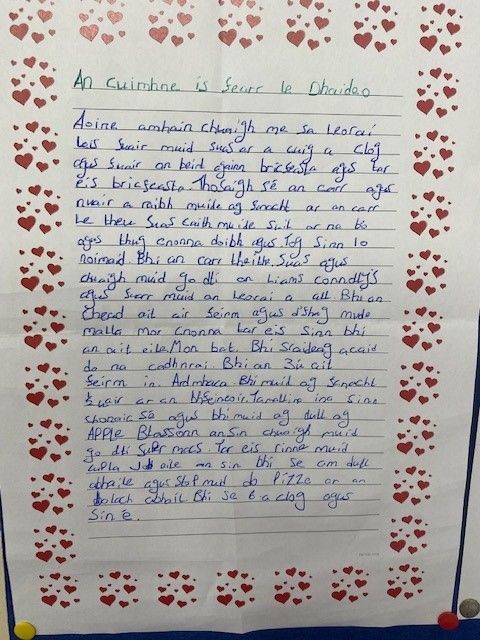 An cuimhne is fearr le Dhaideo
Aoine amhain chuaigh me sa leorai
leis fuair muid suas ar a cuig a clog
agus fuair an beirt againn bricfeasta agus tar
eis bricfeasta. Thosaigh sé an carr agus
nuair a raibh muide ag fanacht ar an carr
le theu suas caith muide suil ar na bo
agus thug cnonna doibh agus Tog sinn 10
noimaid. Bhi an carr theithe suas agus
chuaigh muid go dti an Liams
agus fuarr muid an leorai a all Bhi an
chead ait air feirm agus d'fhag mude
malla mor cnonna tar eis sinn bhi
an ait eile Mon bat. Bhi sraideog acaid
do na cadhnrai. Bhi an 3ú ait
feirm in Ardmhaca Bhi muid ag fanacht
½ uair ar an bhfeineoir. Tamallin ina sinn
chonaic sé agus bhi muid ag dull ag
APPle Blossionn ansin chuaigh muid
go dti Super macs. Tar eis rinne muid
cupla Job eile an sin bhi se am dull
abhaile agus Stop muid do Pizza ar an
bolach abhail Bhi Se 6 a clog agus
Sin é.